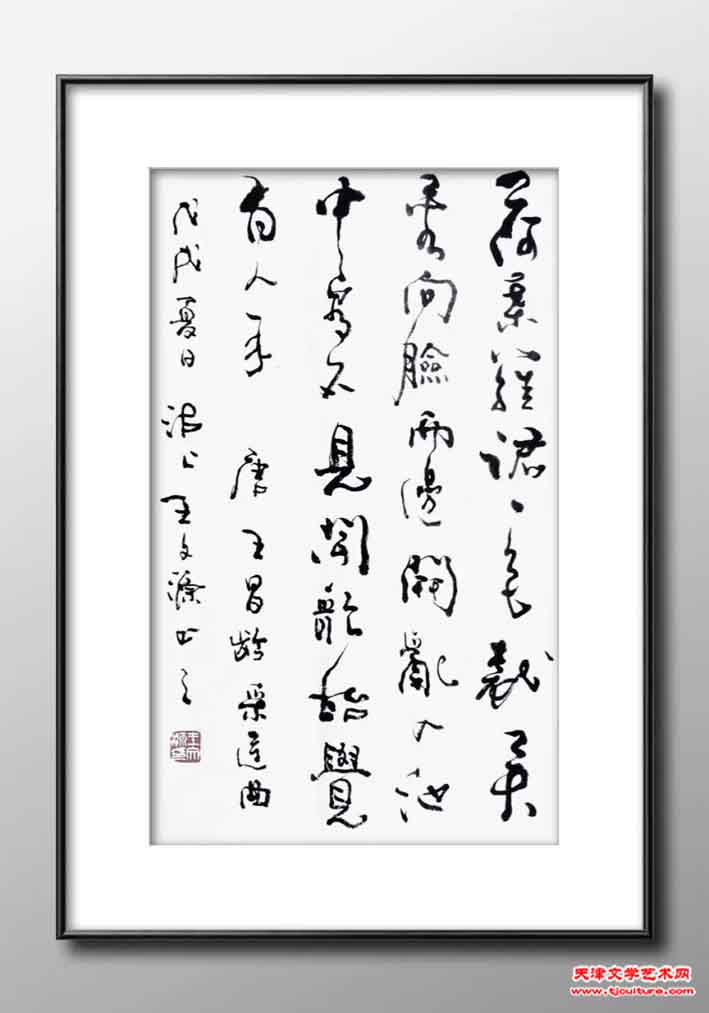 荷葉羅裙一色裁芙
蓉向臉兩邊開亂入池
中看不見聞歌始覺
有人來 唐王昌齡采蓮曲
戊戌夏日 沽上王文書之
天津文学艺术网
www.tjculture.com